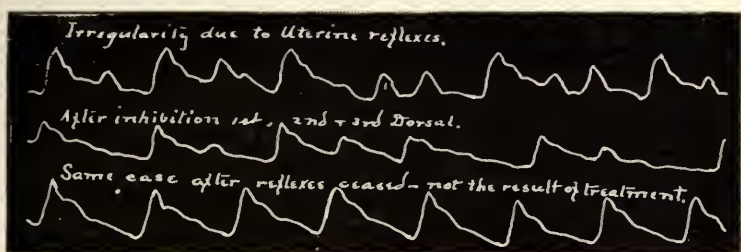 Irregularity due to Uterine reflexes.
After inhibition 1st, 2nd + 3rd Dorsal.
Same case after reflexes ceased - not the result of treatment.